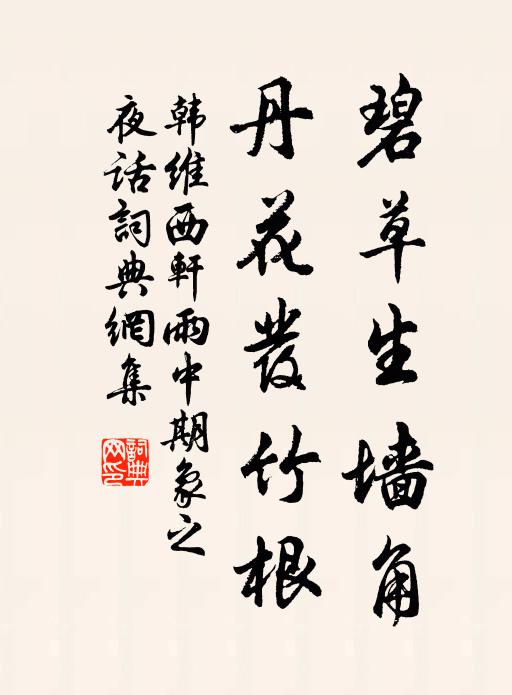 碧草生墙角
丹花發竹根
韩維西軒雨中期象之
夜话詞典網集
詞典
网印